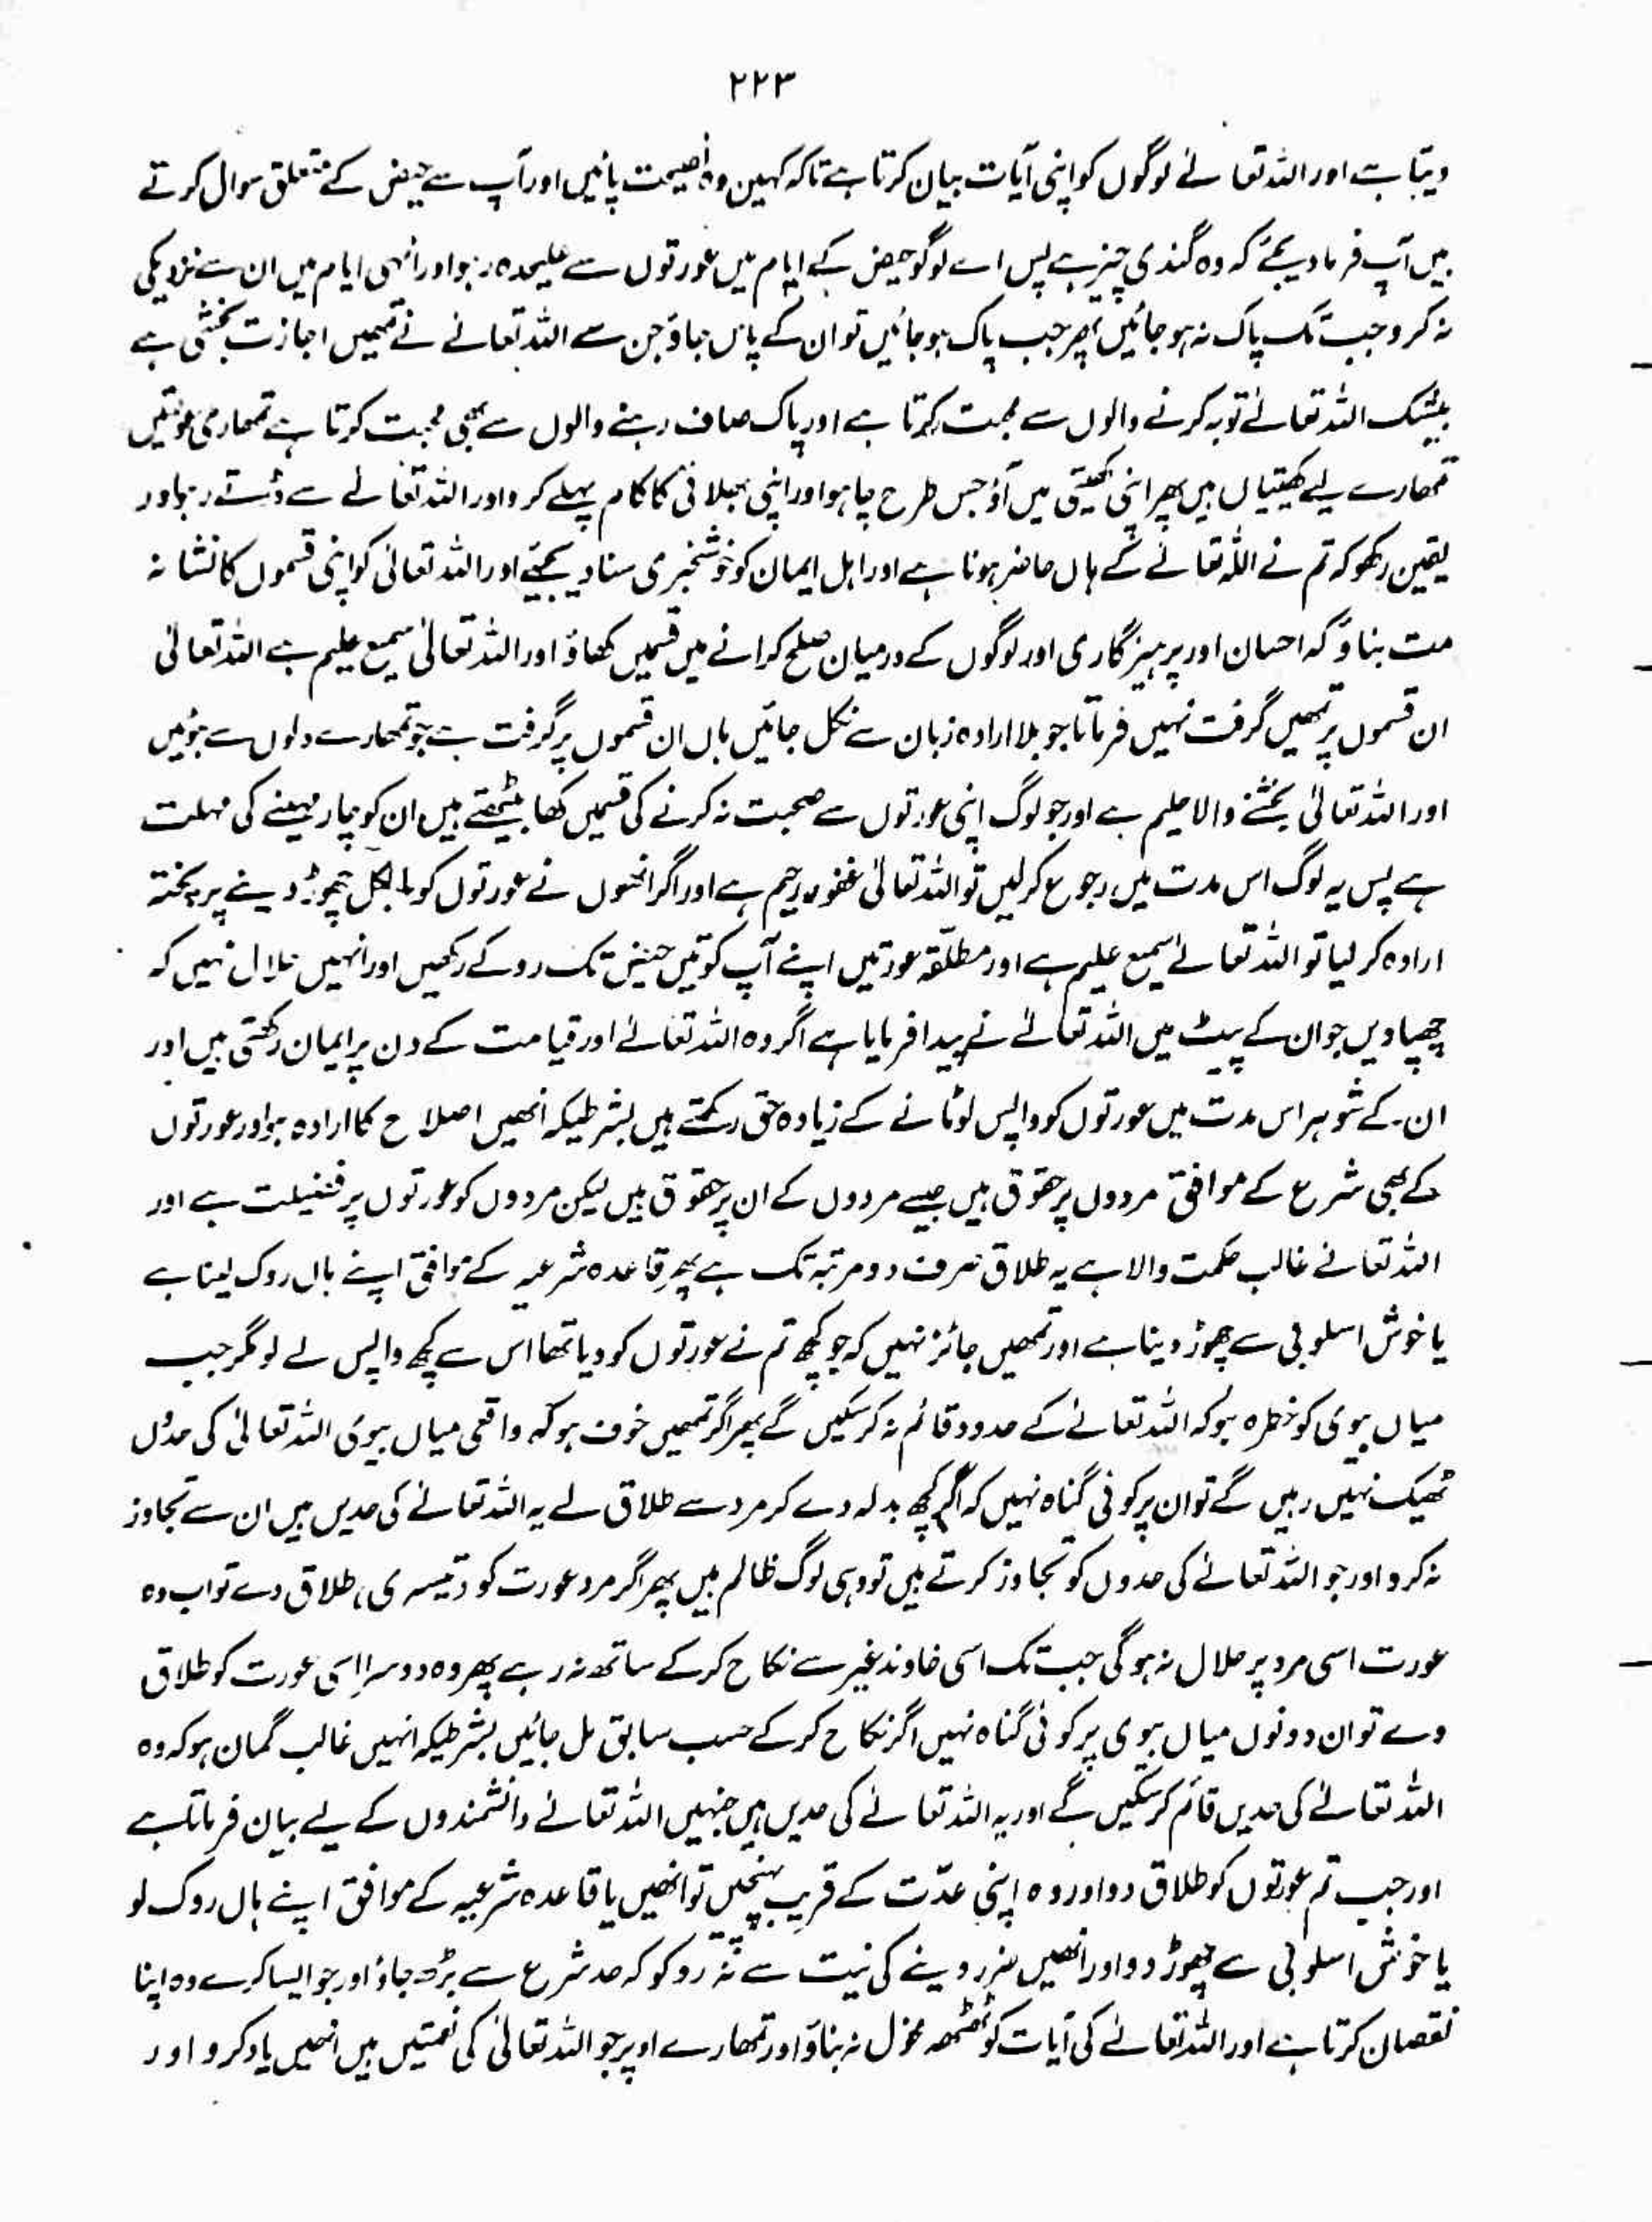 ۲۲۳
دیتا ہے اور اللہ تعالےٰ لوگوں کو اپنی آیات بیان کرتا ہے تاکہ کہیں وہ نصیحت پائیں اور آپ سے حیض کے متعلق سوال کرتے
ہیں آپ فرما دیجئے کہ وہ گندی چیز ہے پس اے لوگو حیض کے ایام میں عورتوں سے علیحدہ رہو اور انہی ایام میں ان سے نزدیکی
نہ کرو جب تک پاک نہ ہو جائیں پھر جب پاک ہو جائیں تو ان کے پاس جاؤ جن سے اللہ تعالےٰ نے تمہیں اجازت بخشی ہے
بیشک اللہ تعالےٰ توبہ کرنے والوں سے محبت کرتا ہے اور پاک صاف رہنے والوں سے بھی محبت کرتا ہے تمہاری عورتیں
تمھارے لیے کھیتیاں ہیں پھر اپنی کھیتی میں آؤ جس طرح چاہو اور اپنی بھلائی کا کام پہلے کرو اور اللہ تعالےٰ سے ڈرتے رہو اور
یقین رکھو کہ تم نے اللہ تعالےٰ کے ہاں حاضر ہونا ہے اور اہل ایمان کو خوشخبری سنا دیجئے اور اللہ تعالیٰ کو اپنی قسموں کا نشانہ
مت بناؤ کہ احسان اور پرہیزگاری اور لوگوں کے درمیان صلح کرانے میں قسمیں کھاؤ اور اللہ تعالیٰ سمیع علیم ہے اللہ تعالیٰ
ان قسموں پر تمھیں گرفت نہیں فرماتا جو بلا ارادہ زبان سے نکل جائیں ہاں ان قسموں پر گرفت ہے جو تمھارے دلوں سے ہوئیں
اور اللہ تعالیٰ بخشنے والا حلیم ہے اور جو لوگ اپنی عورتوں سے صحبت نہ کرنے کی قسمیں کھا بیٹھتے ہیں ان کو چار مہینے کی مہلت
ہے پس یہ لوگ اس مدت میں رجوع کر لیں تو اللہ تعالیٰ غفور رحیم ہے اور اگر انھوں نے عورتوں کو بالکل چھوڑ دینے پر پختہ
ارادہ کر لیا تو اللہ تعالےٰ سمیع علیم ہے اور مطلّقہ عورتیں اپنے آپ کو تین حیض تک روکے رکھیں اور انہیں حلال نہیں کہ
چھپا ویں جو ان کے پیٹ میں اللہ تعالےٰ نے پیدا فرمایا ہے اگر وہ اللہ تعالےٰ اور قیامت کے دن پر ایمان رکھتی ہیں اور
ان کے شوہر اس مدت میں عورتوں کو واپس لوٹانے کے زیادہ حق رکھتے ہیں بشرطیکہ انھیں اصلاح کا ارادہ ہو اور عورتوں
کے بھی شرع کے موافق مردوں پر حقوق ہیں جیسے مردوں کے ان پر حقوق ہیں لیکن مردوں کو عورتوں پر فضیلت ہے اور
اللہ تعالےٰ غالب حکمت والا ہے یہ طلاق صرف دو مرتبہ تک ہے پھر قاعدہ شرعیہ کے موافق اپنے ہاں روک لینا ہے
یا خوش اسلوبی سے چھوڑ دینا ہے اور تمھیں جائز نہیں کہ جو کچھ تم نے عورتوں کو دیا تھا اس سے کچھ واپس لے لو مگر جب
میاں بیوی کو خطرہ ہو کہ اللہ تعالےٰ کے حدود قائم نہ کر سکیں گے پھر اگر تمھیں خوف ہو کہ واقعی میاں بیوی اللہ تعالیٰ کی حدوں
ٹھیک نہیں رہیں گے تو ان پر کوئی گناہ نہیں کہ اگر کچھ بدلہ دے کر مرد سے طلاق لے یہ اللہ تعالےٰ کی حدیں ہیں ان سے تجاوز
نہ کرو اور جو اللہ تعالےٰ کی حدوں کو تجاوز کرتے ہیں تو وہی لوگ ظالم ہیں پھر اگر مرد عورت کو (تیسری) طلاق دے تو اب وہ
عورت اسی مرد پر حلال نہ ہوگی جب تک اسی خاوند غیر سے نکاح کر کے ساتھ نہ رہے پھر وہ دوسرا اسی عورت کو طلاق
دے تو ان دونوں میاں بیوی پر کوئی گناہ نہیں اگر نکاح کر کے حسب سابق مل جائیں بشرطیکہ انہیں غالب گمان ہو کہ وہ
اللہ تعالےٰ کی حدیں قائم کر سکیں گے اور یہ اللہ تعالےٰ کی حدیں ہیں جنہیں اللہ تعالےٰ دانشمندوں کے لیے بیان فرماتا ہے
اور جب تم عورتوں کو طلاق دو اور وہ اپنی عدّت کے قریب پہنچیں تو انھیں یا قاعدہ شرعیہ کے موافق اپنے ہاں روک لو
یا خوش اسلوبی سے چھوڑ دو اور انھیں ضرر دینے کی نیت سے نہ روکو کہ حد شرع سے بڑھ جاؤ اور جو ایسا کرے وہ اپنا
نقصان کرتا ہے اور اللہ تعالےٰ کی آیات کو ٹھٹھہ مخول نہ بناؤ اور تمھارے اوپر جو اللہ تعالیٰ کی نعمتیں ہیں انھیں یاد کرو اور